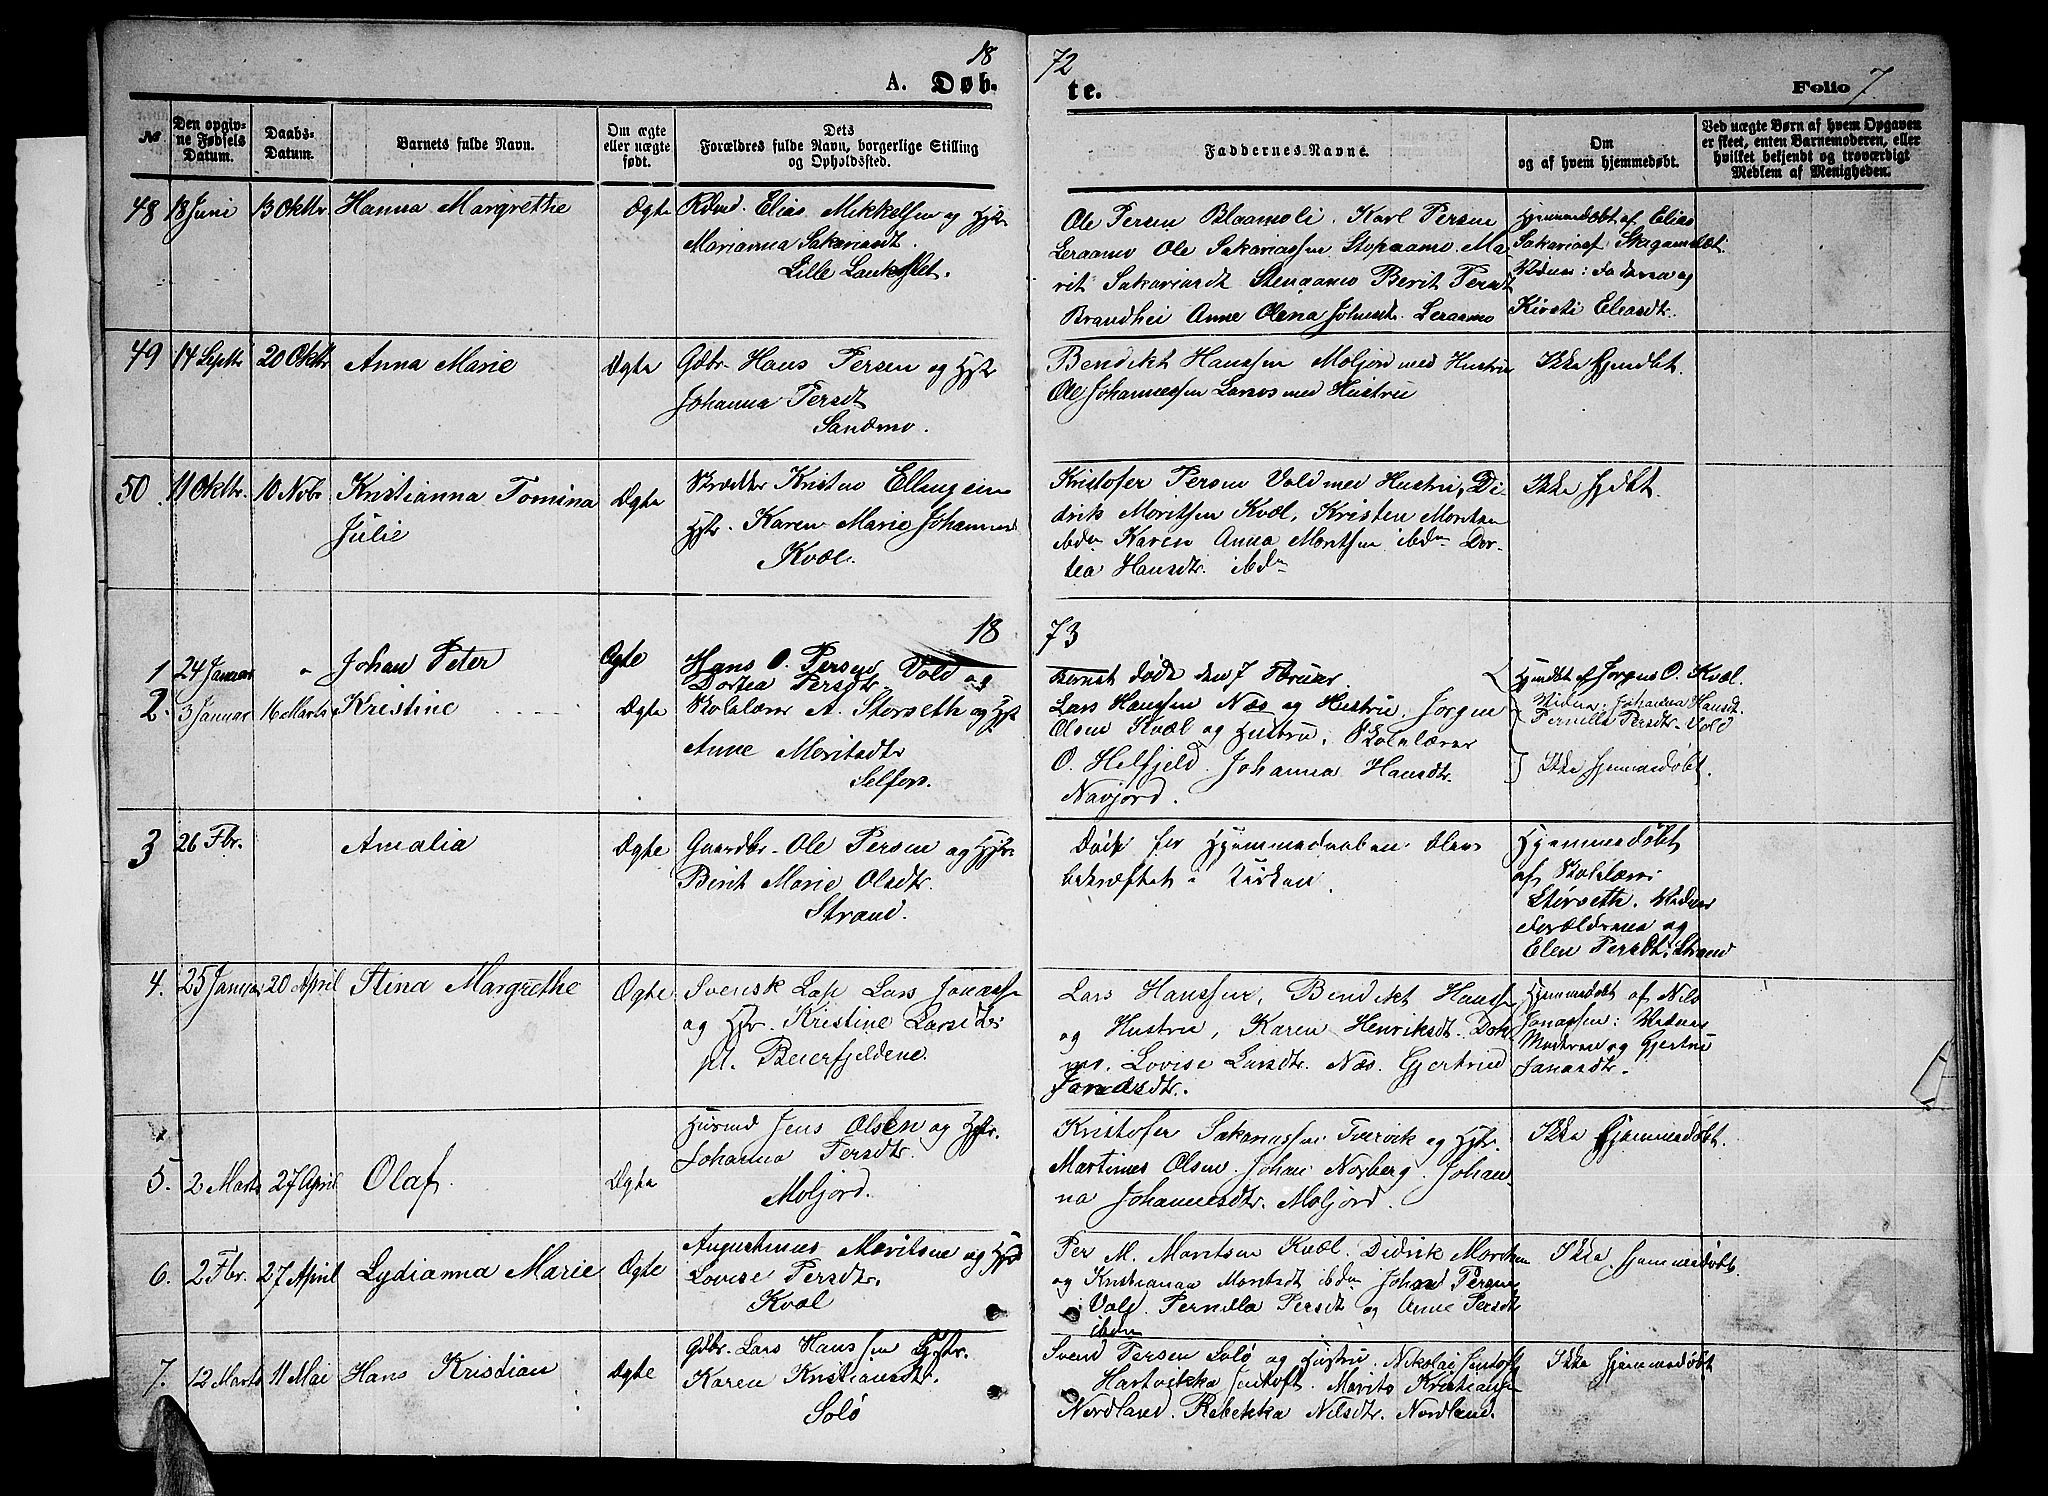 18 72
A. Døb. te. Folio 7
№
Den opgiv-
ne Fødsels
Datum.
Daabs-
Datum.
Barnets fulde Navn.
Om ægte
eller uægte
født.
Dets
Forældres fulde Navn, borgerlige Stilling
og Opholdssted.
Faddernes Navne.
Om
og af hvem hjemmedøbt.
Ved uægte Børn af hvem Opgaven
er skeet, enten Barnemoderen, eller
hvilket bekjendt og troværdigt
Medlem af Menigheden.
48 18 Juni 13 Oktbr Hanna Margrethe Ægte
Elias Mikkelsen og Hstr
Marianna Sakariasdt.
Lille
Ole Persen Blaamoli. Karl Persen
Leraamo Ole Sakariassen Storaamo Ma-
rit Sakariasdt Stenaamo Berit Persdt
Brandhei Anne Olena Johnsdt. Leraamo
Hjemmedøbt af Elias
Sakariass. Skagamslæt
Vidner: Faderen og
Kirsti Eleasdtr.
49 14 Septbr 20 Oktbr Anna Marie Ægte
Gdbr Hans Persen og Hstr
Johanna Persdt
Sandmo.
Bendikt Hanssen Moljord med Hustru
Ole Johannessen Larsos med Hustru
Ikke Hjemdbt.
50. 11 Oktbr. 10 Novbr Kristianna Tomina
Julie
Ægte
Kristen Ellingsen
Hstr. Karen Marie Johannesd
Kvæl.
Kristofer Persen Vold med Hustru, Di-
drik Moritsen Kvæl, Kristen Moritsen
ibdn Karen Anna Moritsen ibdn Dor-
tea Hansdtr. ibdn
Ikke Hjdbt.
18 73
1 24 Januar " Johan Peter Ægte
Hans O. Persen Vold og
Dortea Persdtr
Barnet døde den 7 Februar
Hjmdbt af Jørgen O. Kvæl.
Vidner: Johanna Hansdt.
Pernille Persdtr. Vold
2. 3 Januar 16 Marts Kristine Ægte
Skolelærer A. Storseth og Hst
Anne Moritsdtr
Selfors.
Lars Hanssen Næs og Hustru. Jørgen
Olsen Kvæl og Hustru. Skolelærer
O. Helfjeld. Johanna Hansdtr.
Navjord.
Ikke hjemmedøbt.
3 26 Fbr. Amalia Ægte
Gaardbr. Ole Persen og Hstr
Berit Marie Olsdtr.
Strand.
Døde før Hjemmedaaben blev
bekræftet i Kirken.
Hjemmedøbt
af Skolelærer
Storseth. Vidner
Forældrene og
Elen Persdt. Strand
4. 25 Januar 20 April Stina Margrethe Ægte
Svensk Lap Lars Jonass.
og Hstr. Kristine Larsdtr
pt. Beierfjeldene.
Lars Hanssen, Bendikt Hanss
og Hustru, Karen Henriksdt. Dok
mo. Lovise Larsdtr. Næs. Gjertrud
Jonasdtr.
Hjemmedøbt af Nils
Jonassen: Vidner
Moderen og Gjertru
Jonasdtr.
5. 2 Marts 27 April Olaf. Ægte
Husmd Jens Olsen og Hstr.
Johanna Persdtr.
Moljord.
Kristofer Sakariassen Tvervik og Hstr.
Martines Olsen. Johan Norberg. Johan-
na Johannesdtr. Moljord.
Ikke Hjemmedøbt.
6. 2 Fbr. 27 April Lydianna Marie Ægte
Augustinus Moritsen og Hst
Lovise Persdtr.
Kvæl
Per M. Moritsen Kvæl. Didrik Moritsen
og Kristianna Moritsdt ibdn Johan Persen
Vold. Pernilla Persdt og Anne Persdt
ibdn
Ikke hjemmedøbt.
7. 12 Marts 11 Mai Hans Krisdian Ægte
Gdbr. Lars Hanssen Hstr.
Karen Kristiansdtr.
Solø
Svend Persen Solø og Hustru. Nikolai Jentoft
Hartvikka Jentoft. Morits Kristiansen
Nordland. Rebekka Nilsdtr. Nordland.
Ikke hjemmedøbt